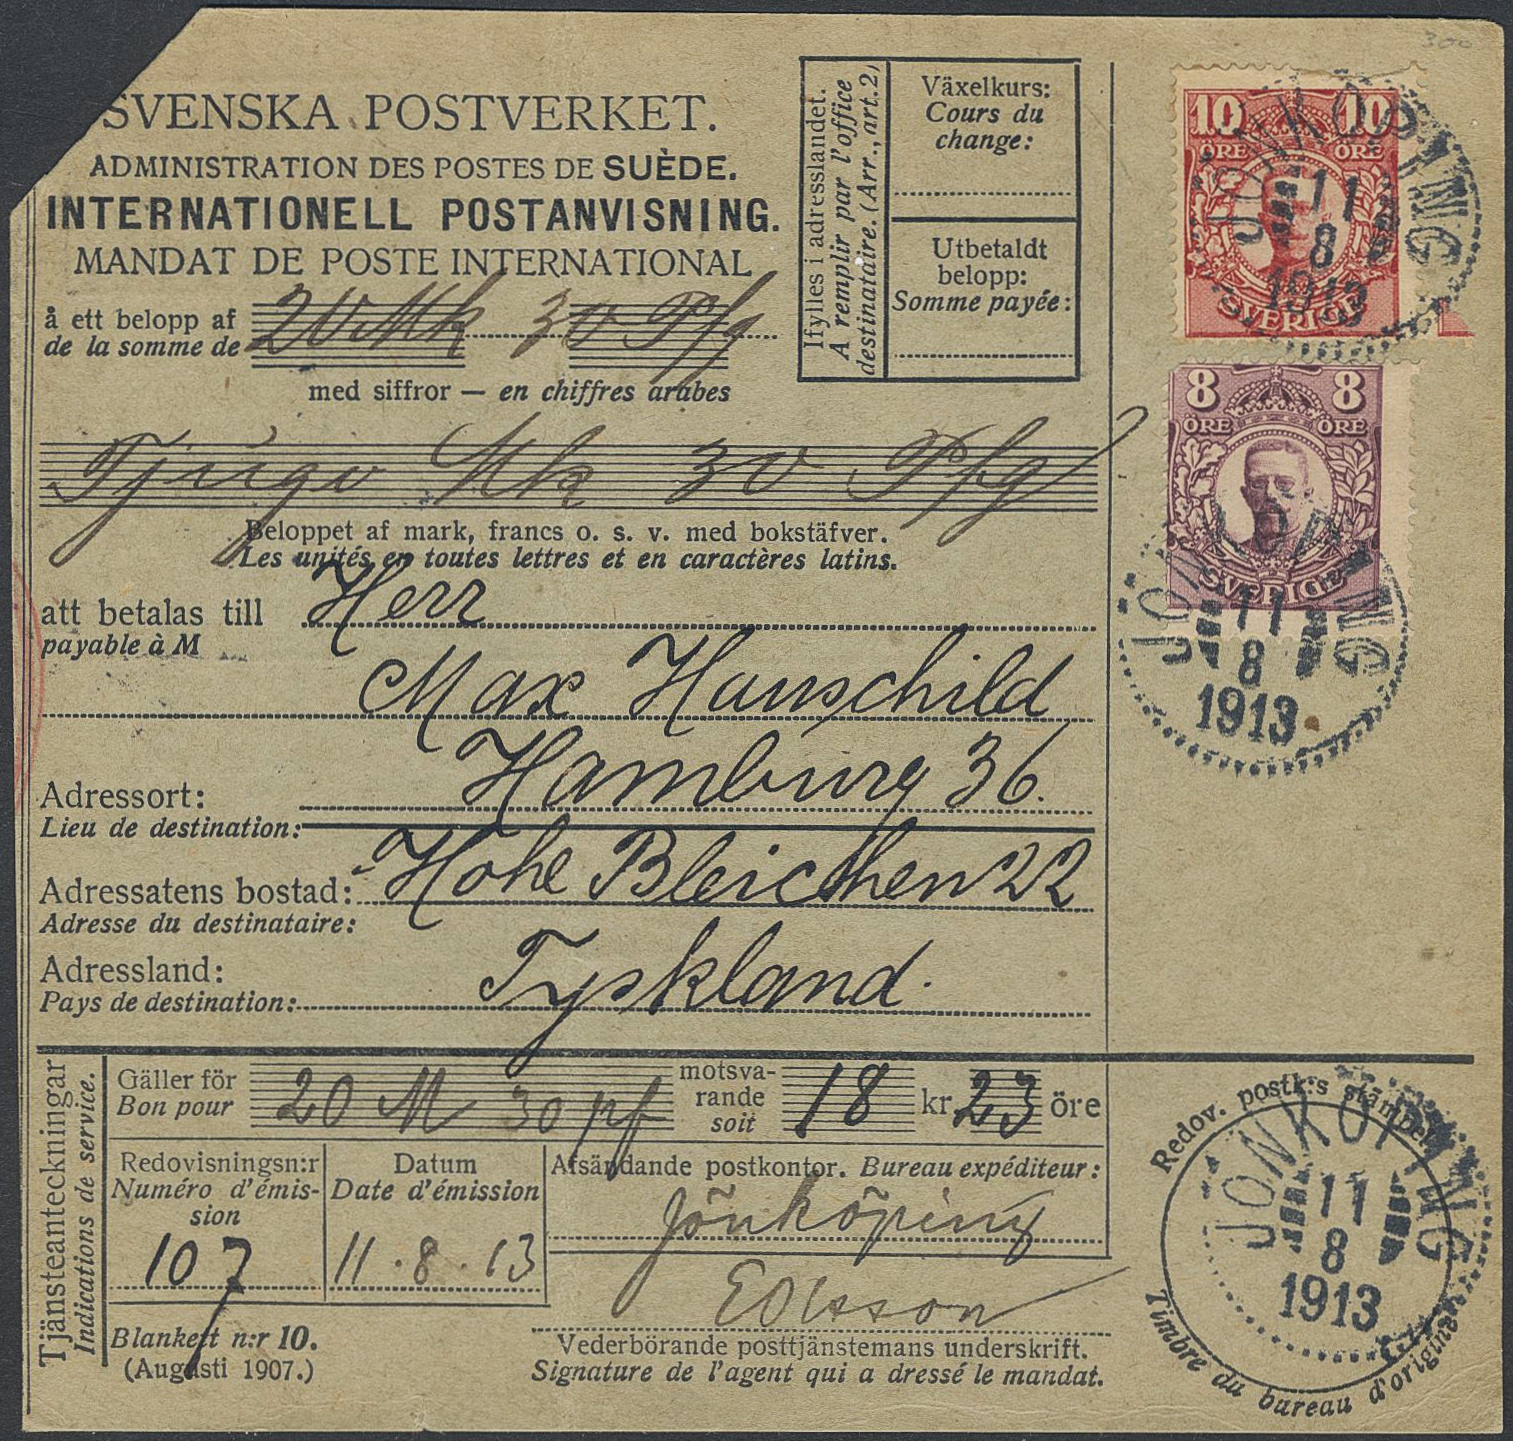 SVENSKA POSTVERKET.
ADMINISTRATION DES POSTES DE SUÈDE.
INTERNATIONELL POSTANVISNING.
MANDAT DE POSTE INTERNATIONAL
å ett belopp af
de la somme de
20 Mk 30 Pfg
med siffror — en chiffres arabes
Ifylles i adresslandet.
A remplir par l'office
destinataire. (Arr., art. 2)
Växelkurs:
Cours du
change:
Utbetaldt
belopp:
Somme payée:
300
10 10
ÖRE ÖRE
SVERIGE
JÖNKÖPING
11
8
1913
8 8
ÖRE ÖRE
SVERIGE
JÖNKÖPING
11
8
1913
Tjugo Mk 30 Pfg
Beloppet af mark, francs o. s. v. med bokstäfver.
Les unités en toutes lettres et en caractères latins.
att betalas till
payable à M
Herr
Max Hauschild
Adressort:
Lieu de destination:
Hamburg 36.
Adressatens bostad:
Adresse du destinataire:
Hohe Bleichen 22
Adressland:
Pays de destination:
Tyskland.
Tjänsteanteckningar
Indications de service.
Gäller för
Bon pour
20 M 30 pf
motsva-
rande
soit
18 kr. 23 öre
Redovisningsn:r
Numéro d'émis-
sion
107
Datum
Date d'émission
11.8.13
Afsändande postkontor. Bureau expéditeur:
Jönköping
EOlsson
Vederbörande posttjänstemans underskrift.
Signature de l'agent qui a dressé le mandat.
Blankett n:r 10.
(Augusti 1907.)
Redov. postk:s stämpel
JÖNKÖPING
11
8
1913
Timbre du bureau d'origine